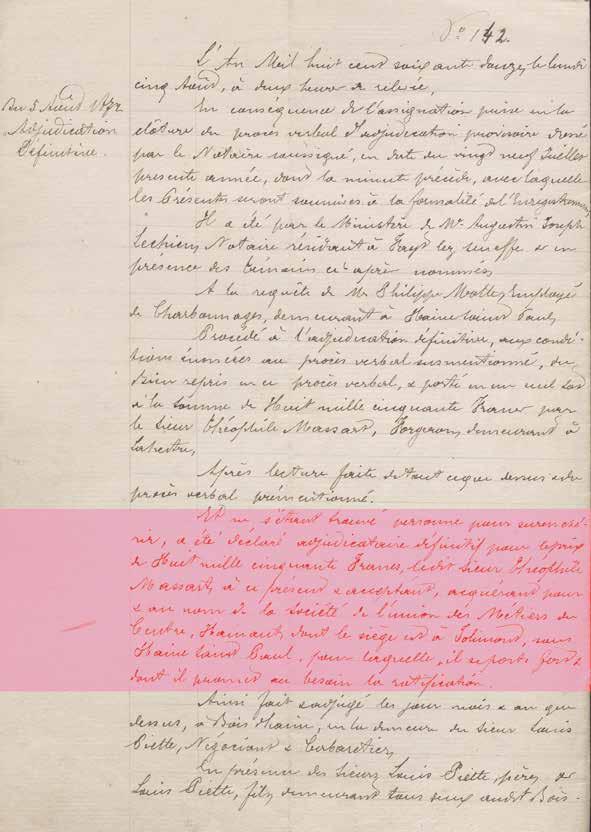 No 142.
L'An Mil huit cent soixante douze, le lundi
cinq Août, à deux heures de relevée,
Du 5 Août 1872
Adjudication
Définitive.
En conséquence de l'assignation prise en la
clôture du procès verbal d'adjudication provisoire dressé
par le Notaire soussigné, en date du vingt neuf Juillet
présente année, dont la minute précède, avec laquelle
les Présentes seront soumises à la formalité de l'Enregistrement
Il a été par le Ministère de Mr Augustin Joseph
Lechien, Notaire résidant à Fayt lez Seneffe & en
présence des témoins ci après nommés,
A la requête de Mr Philippe Molle, Employé
de Charbonnages, demeurant à Haine Saint Paul,
Procédé à l'adjudication définitive, aux condi-
tions énoncées au procès verbal susmentionné, du
bien repris en ce procès verbal, & porté en un seul lot
à la somme de Huit mille cinquante Francs par
le sieur Théophile Massart, Forgeron, demeurant à
Lahestre,
Après lecture faite de tout ce que dessus & du
procès verbal prémentionné.
Et ne s'étant trouvé personne pour surenché-
rir, a été déclaré adjudicataire définitif pour le prix
de Huit mille cinquante Francs, le dit sieur Théophile
Massart, à ce présent & acceptant, acquérant pour
& au nom de la Société de l'union des Métiers du
Centre, Hainaut, dont le siège est à Jolimont, sous
Haine Saint Paul, pour laquelle il se porte fort &
dont il promet au besoin la ratification.
Ainsi fait & adjugé les jour, mois & an que
dessus, à Bois d'haine, en la demeure du sieur Louis
Piette, Négociant & Cabaretier,
En présence des sieurs Louis Piette, père, &
Louis Piette, fils, demeurant tous deux audit Bois-